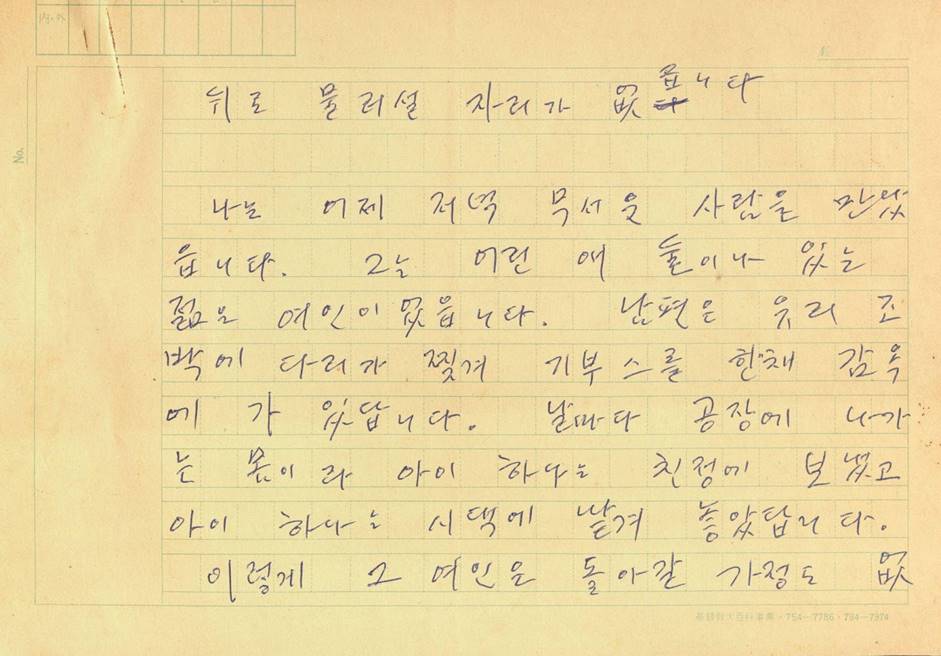 뒤로 물러설 자리가 없읍니다
나는 어제 저녁 무서운 사람을 만났
읍니다. 그는 어린 애 둘이나 있는
젊은 여인이었읍니다. 남편은 유리 조
박에 다리가 찢겨 기부스를 한채 감옥
에 가 있답니다. 날마다 공장에 나가
는 몸이라 아이 하나는 친정에 보냈고
아이 하나는 시댁에 맡겨 놓았답니다.
이렇게 그 여인은 돌아갈 가정도 없
No.
754-7786 · 794-7974